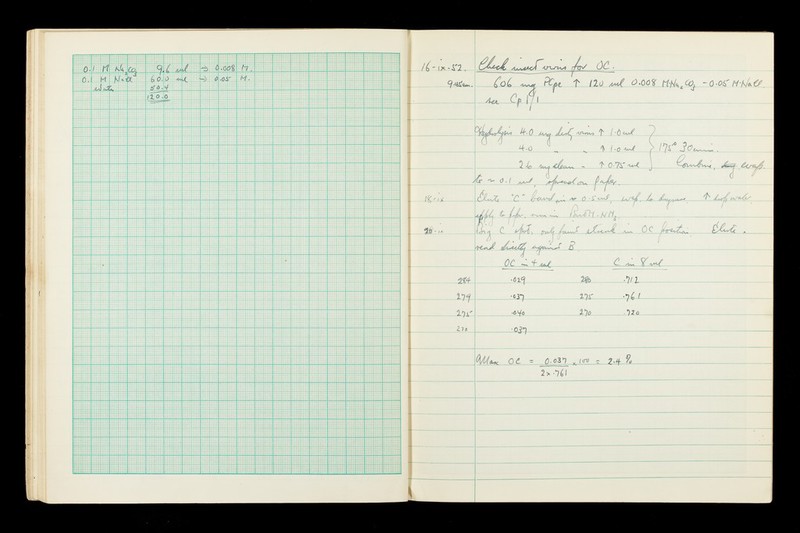 0.1 M Na2CO3 9.6 ml → 0.008 M.
0.1 M NaCl 60.0 ml → 0.05 M.
Water 50.4
120.0
16-ix-52. Check insect virus for OC.
9.45am 606 mg ↑ 120 ml 0.008 M Na2CO3 - 0.05 M NaCl
see Cp 1/1
Hydrolysis 4.0 mg dirty virus ↑ 1.0 ml
4.0 " " ↑ 1.0 ml } 175° 30 min.
2.6 mg clean " ↑ 0.75 ml Combine, evap.
to ~ 0.1 ml, spread on paper.
Elute "C" band in ~ 0.5 ml, evap. to dryness, ↑ water
apply to paper, run in -NH3
C spot, only faint streak in OC position. Elute,
read directly against B
OC in 4 ml C in 8 ml
284 .029 280 .712
279 .037 275 .761
275 .040 270 .720
270 .037
Max OC = 0.037 x 100 = 2.4 %
2 x .761